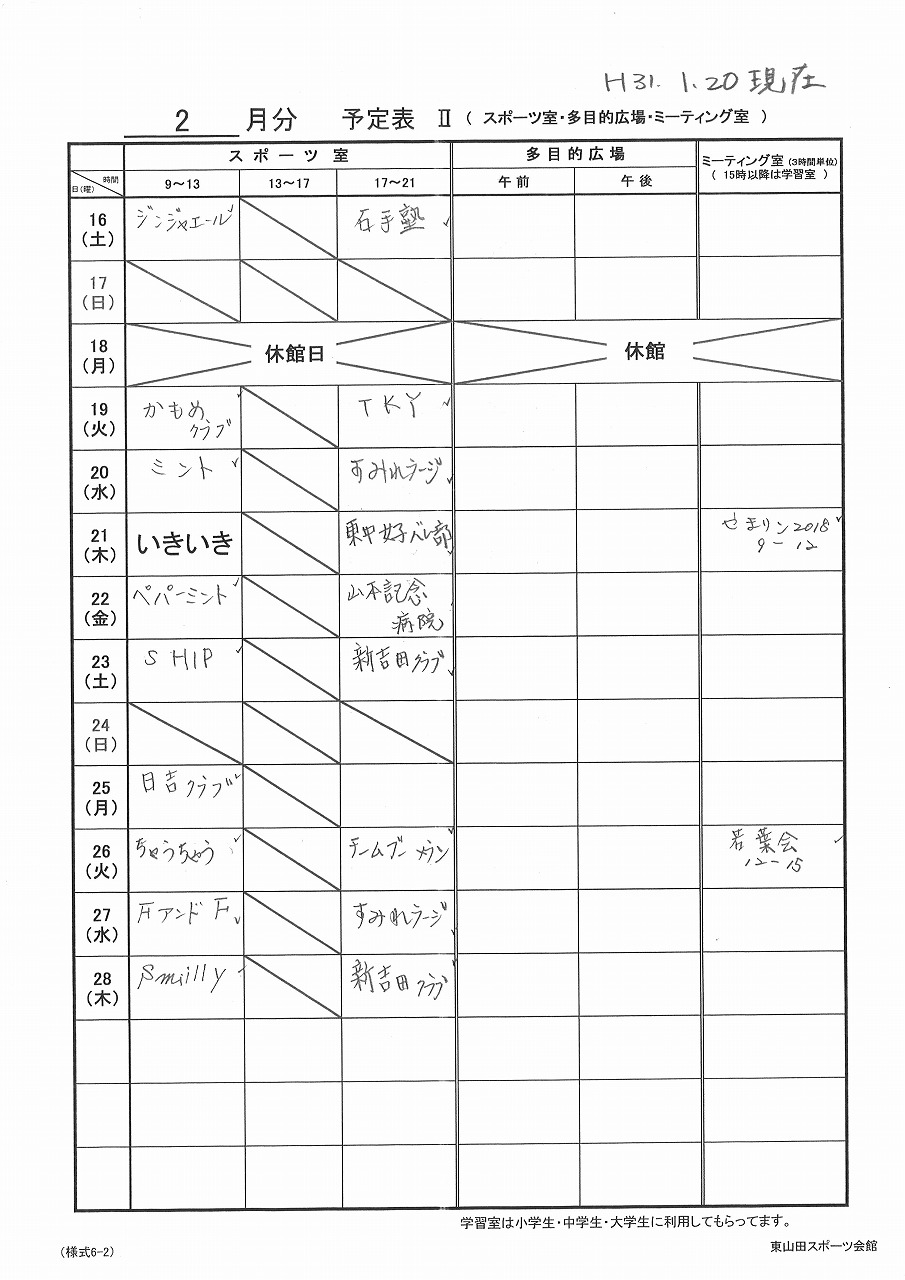 H31. 1.20 現在
2 月分 予定表 Ⅱ ( スポーツ室・多目的広場・ミーティング室 )
スポーツ室 多目的広場 ミーティング室 (3時間単位)
( 15時以降は学習室 )
時間
日(曜) 9～13 13～17 17～21 午前 午後
16 ジンジャエール 石手塾
(土)
17
(日)
18 休館日 休館
(月)
19 かもめ TKY
(火) クラブ
20 ミント すみれラージ
(水)
21 いきいき 東中女子バレー部 やまリン2018
(木) 9－12
22 ペパーミント 山本記念
(金) 病院
23 SHIP 新吉田クラブ
(土)
24
(日)
25 日吉クラブ
(月)
26 ちゅうちゅう チームブーメラン 若葉会
(火) 12－15
27 FアンドF すみれラージ
(水)
28 Smilly 新吉田クラブ
(木)
学習室は小学生・中学生・大学生に利用してもらってます。
(様式6-2) 東山田スポーツ会館